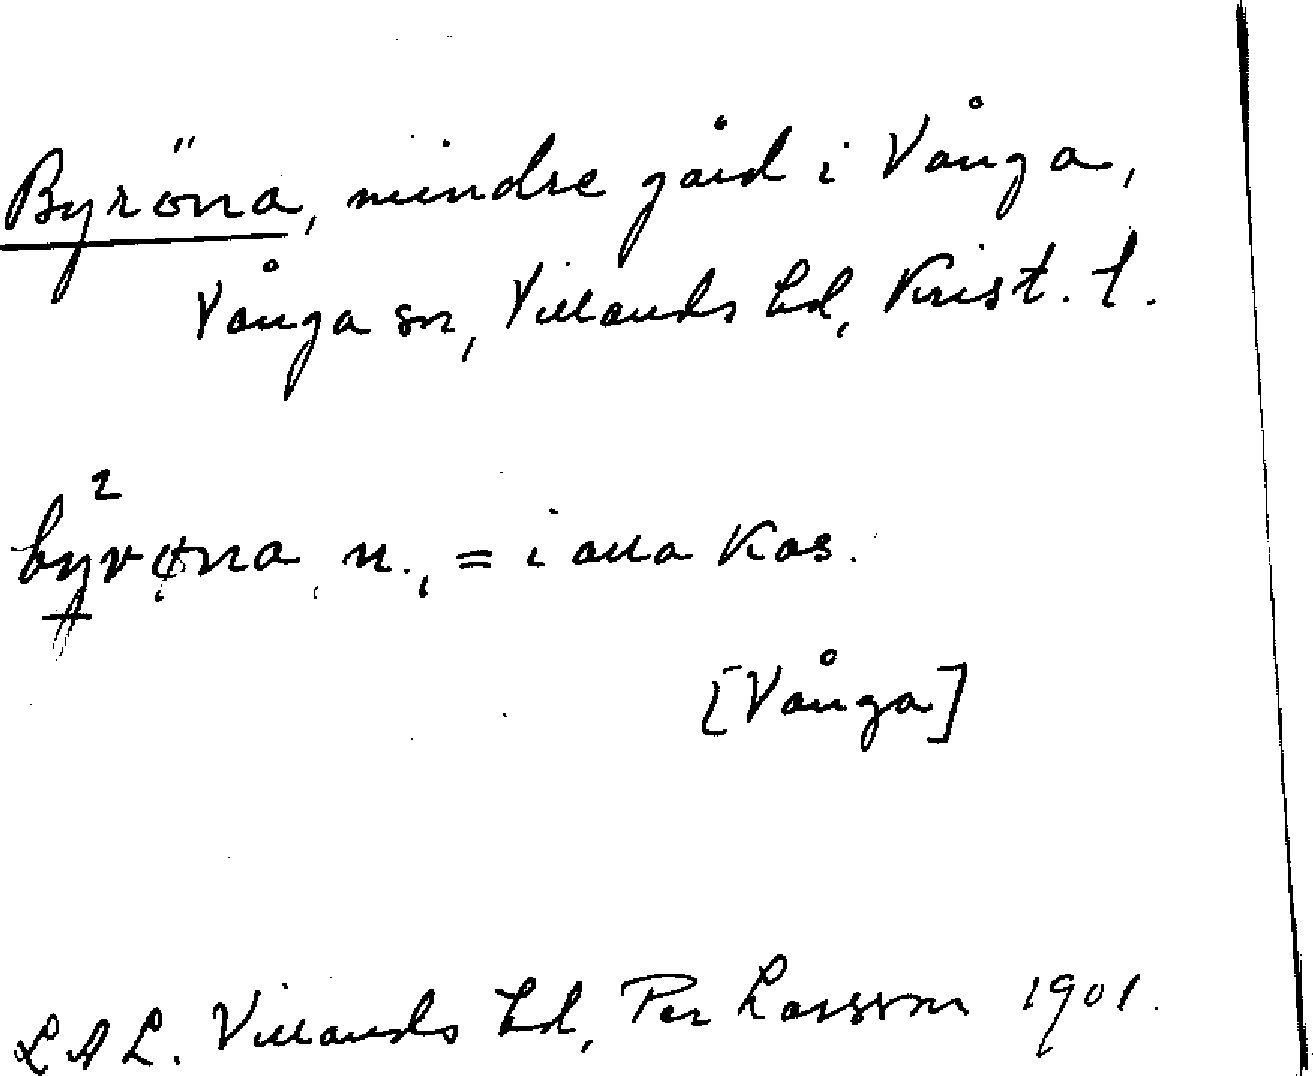 Byröna, mindre gård i Vånga,
Vånga sn, Villands hd, Krist. l.
by²røna, n., = i alla Kas.
[Vånga]
L A L. Villands hd, Per Larsson 1901.